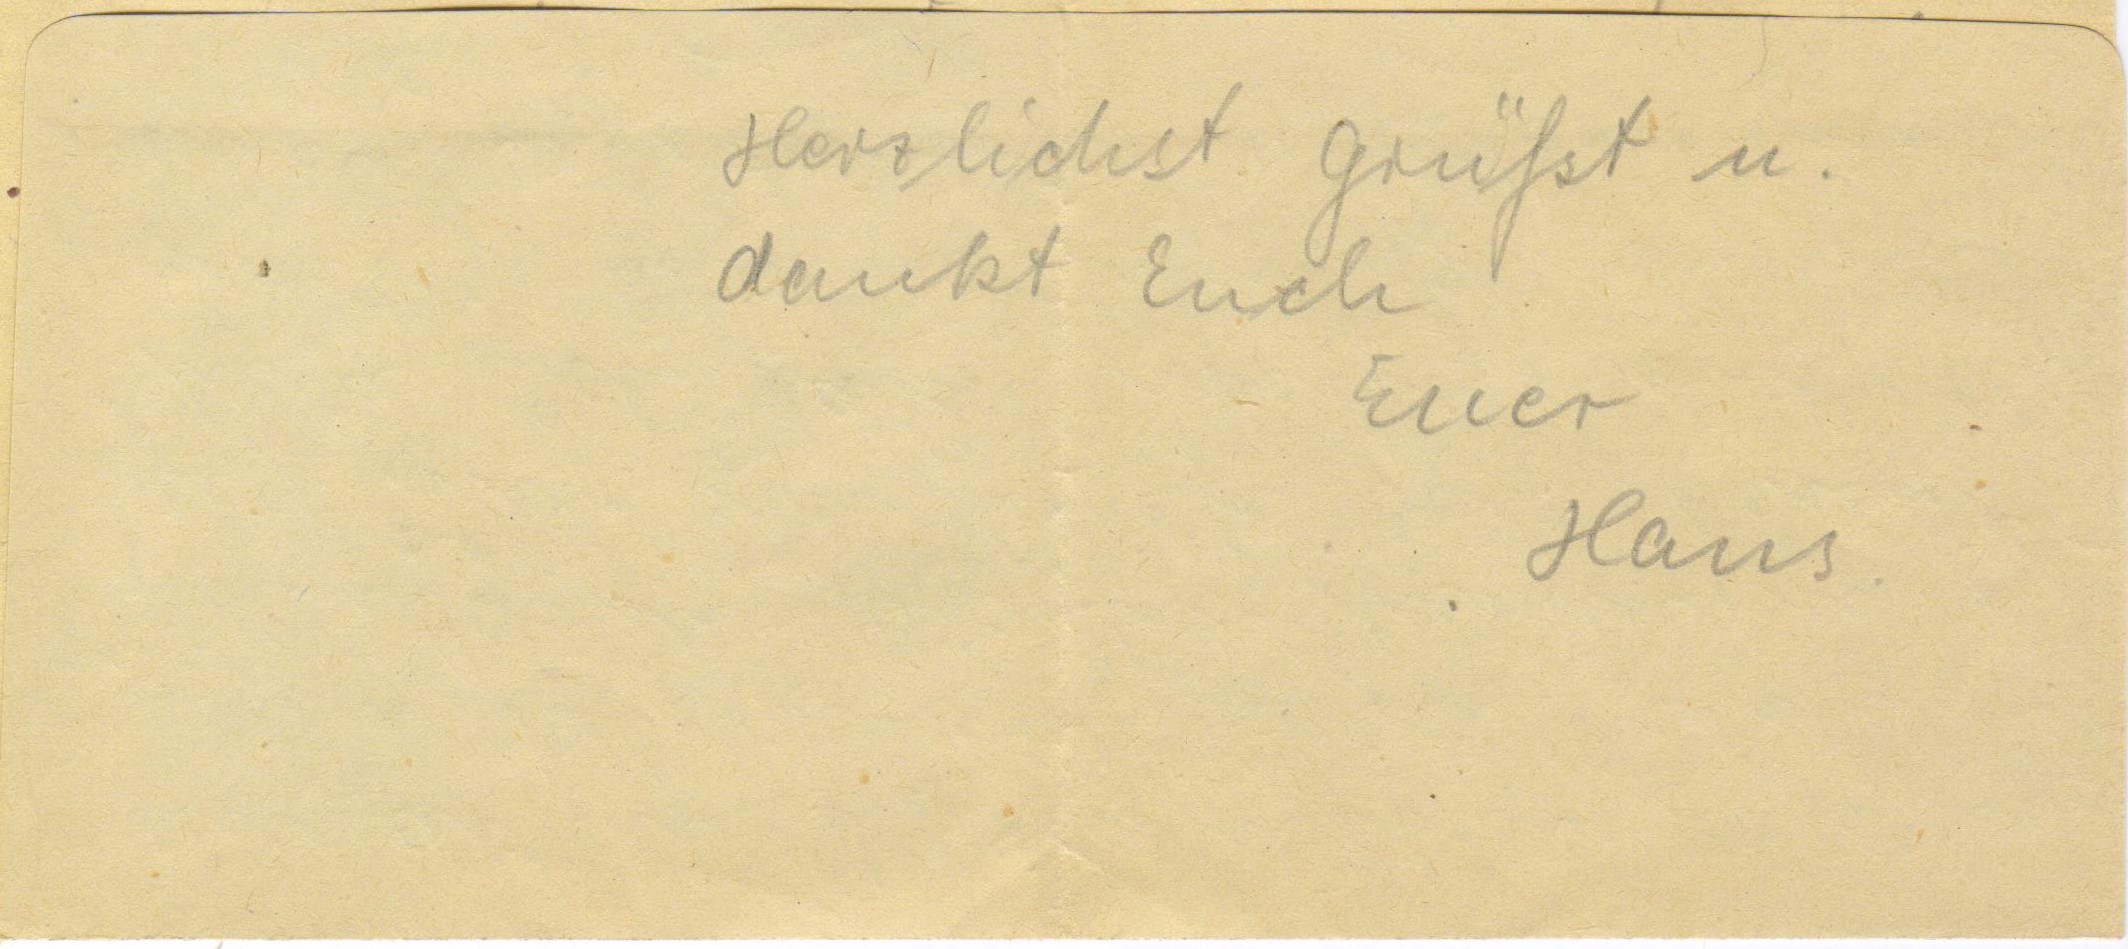 Herzlichst grüßt u.
dankt Euch
Euer
Hans.